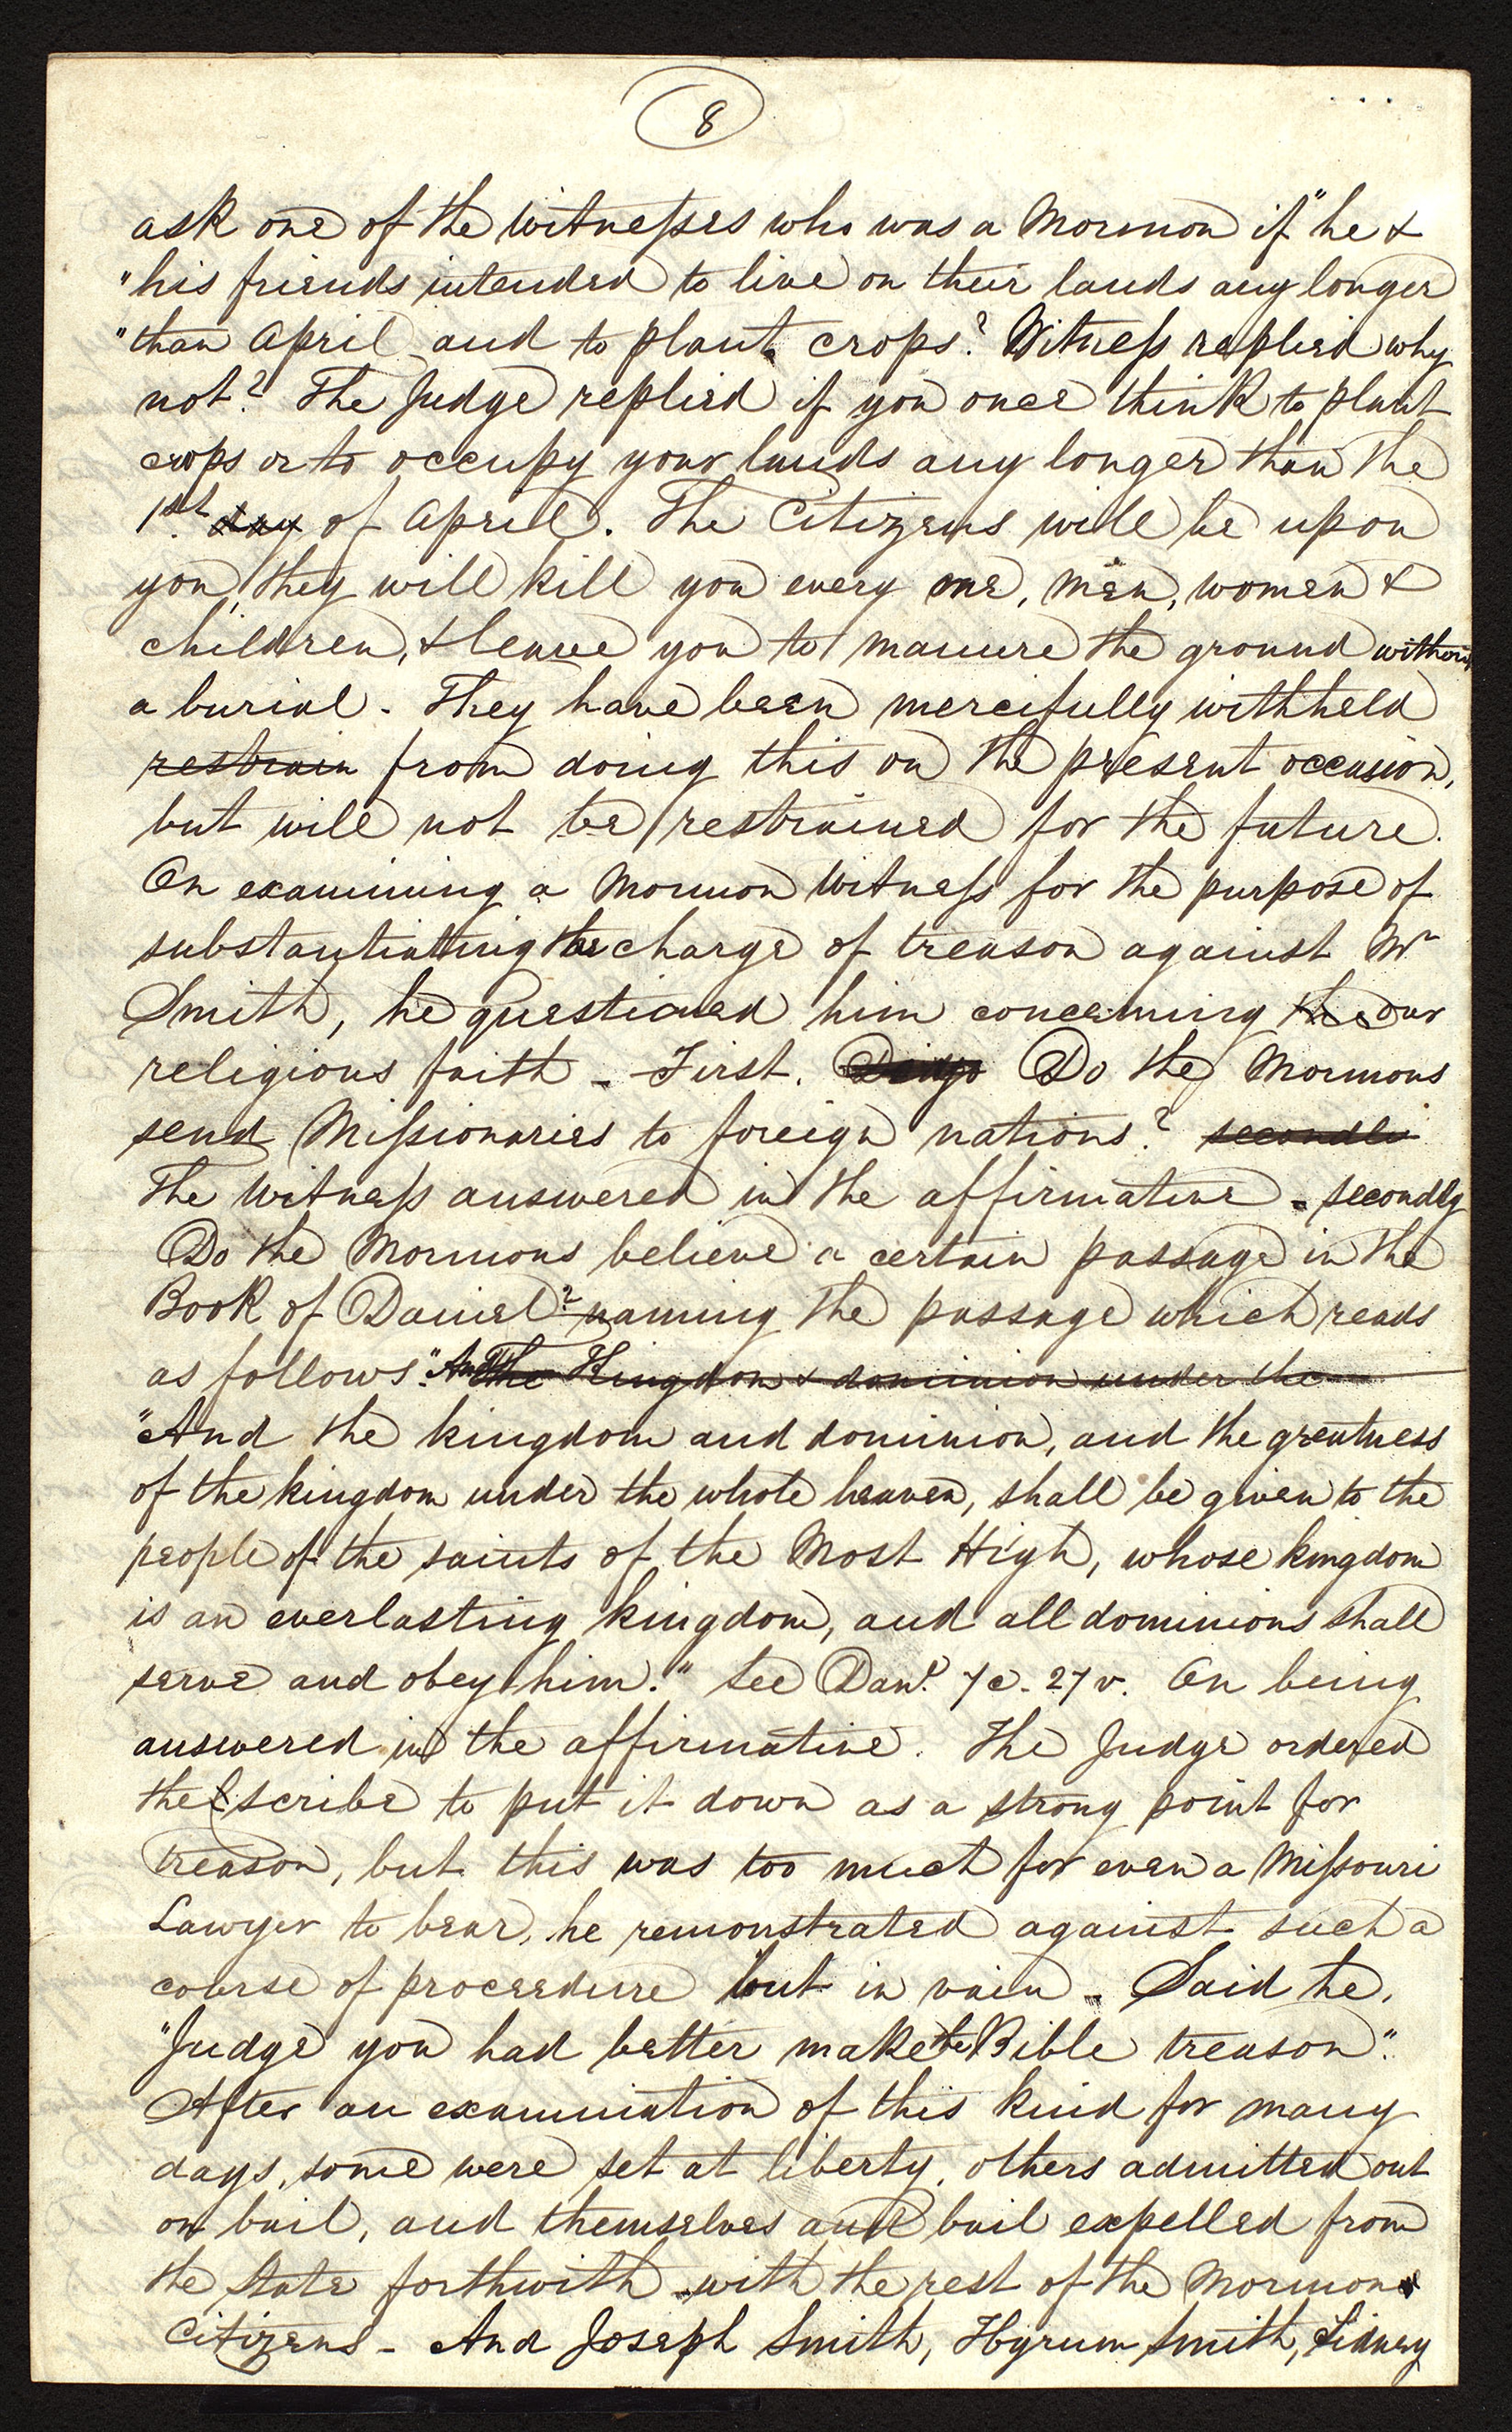 8
ask one of the witnesses who was a Mormon if "he &
"his friends intended to live on their lands any longer
"than April and to plant crops? Witness replied why
not? The Judge replied if you once think to plant
crops or to occupy your lands any longer than the
1st. day of April. The Citizens will be upon
you, they will kill you every one, men, women &
children, & leave you to manure the ground without
a burial. They have been mercifully withheld
restrain from doing this on the present occasion,
but will not be restrained for the future.
On examining a Mormon Witness for the purpose of
substantiating the charge of treason against Mr
Smith, he questioned him concerning the our
religious faith - First. Do the Mormons
send Missionaries to foreign nations? secondli
The Witness answered in the affirmative - secondly
Do the Mormons believe a certain passage in the
Book of Daniel? naming the passage which reads
as follows. "And The Kingdom & dominion under the
"And the kingdom and dominion, and the greatness
of the kingdom under the whole heaven, shall be given to the
people of the saints of the Most High, whose kingdom
is an everlasting kingdom, and all dominions shall
serve and obey him." See Danl. 7c. 27v. On being
answered in the affirmative. The Judge ordered
the scribe to put it down as a strong point for
treason, but this was too much for even a Missouri
Lawyer to bear, he remonstrated against such a
course of proceedure but in vain - Said he,
"Judge you had better make the Bible treason".
After an examination of this kind for many
days, some were set at liberty, others admitted out
on bail, and themselves and bail expelled from
the State forthwith with the rest of the Mormon
Citizens - And Joseph Smith, Hyrum Smith, Sidney